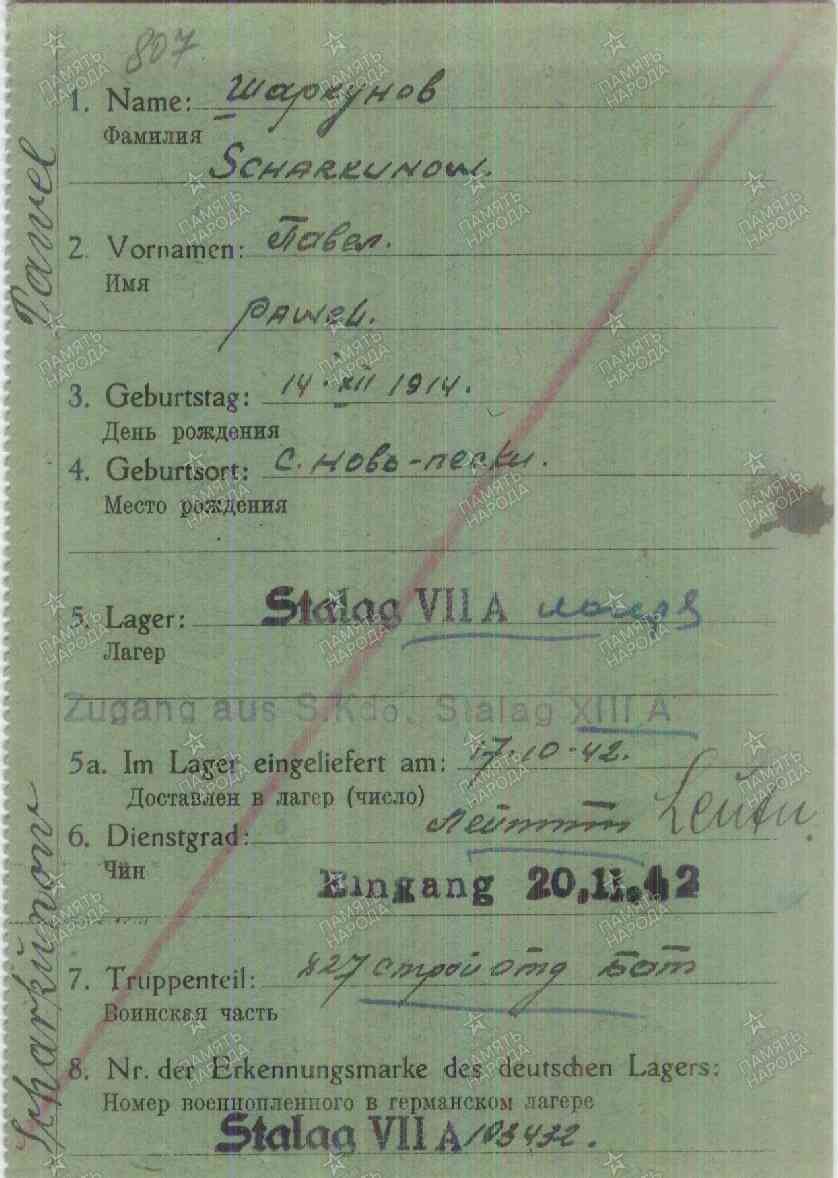 807
1. Name: Шаркунов
Фамилия
SCHARKUNOW.
2. Vornamen: Павел.
Имя
PAWEL.
3. Geburtstag: 14. XII 1914.
День рождения
4. Geburtsort: с. Ново-пески.
Место рождения
5. Lager: Stalag VII A
Лагер
Zugang aus S.Kdo. Stalag XIII A
5a. Im Lager eingeliefert am: 17.10.42.
Доставлен в лагер (число)
6. Dienstgrad: Лейтт Leutn.
Чин
Eingang 20.11.42
7. Truppenteil: 827 строй отд бат
Воинская часть
8. Nr. der Erkennungsmarke des deutschen Lagers:
Номер военнопленного в германском лагере
Stalag VII A/103432.
Scharkunow Pawel
ПАМЯТЬ НАРОДА